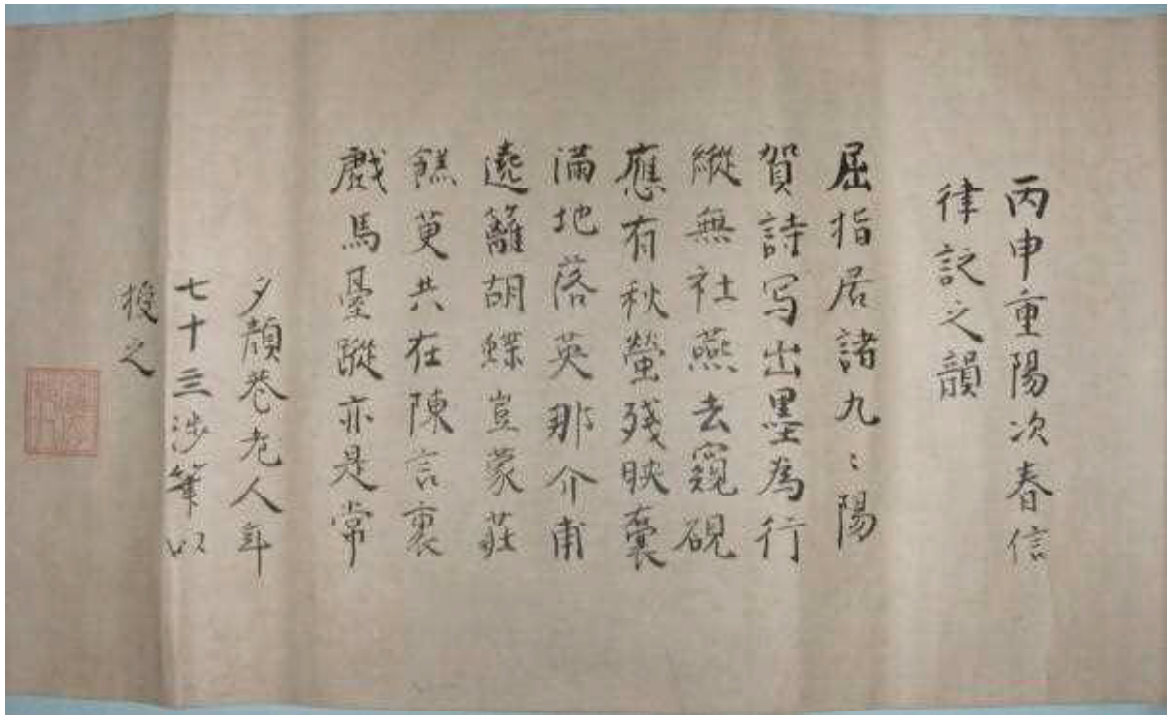 丙申重陽次春信
律詑之韻
屈指居諸九〻陽
賀詩写出墨為行
縦無社燕去窺硯
應有秋螢残映嚢
満地落英那介甫
遶籬胡蝶豈蒙莊
餻莫共在陳言裏
戲馬臺蹤亦是常
夕顔巷老人年
七十三渉筆以
授之